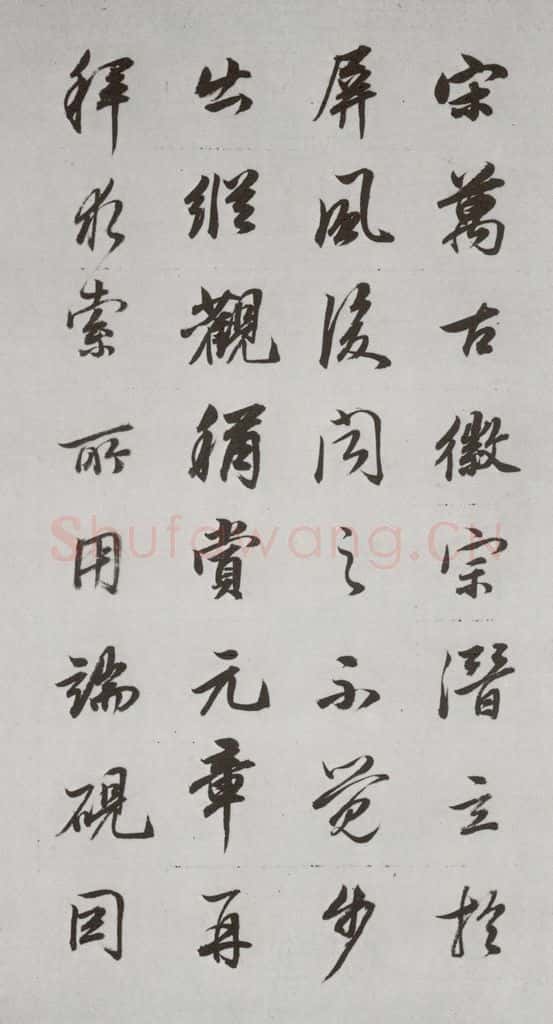 宋萬古徽宗潛立於
屏風後聞之不覺步
出縱觀稱賞元章再
拜求索所用端硯因
Shufawang.CN